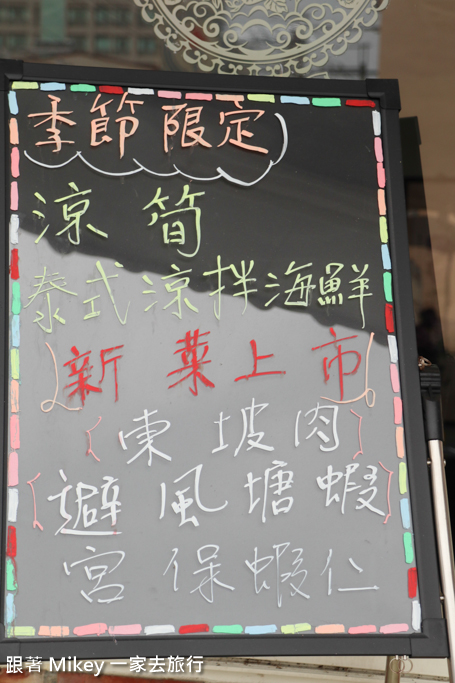 季節限定
涼筍
泰式涼拌海鮮
新菜上市
東坡肉
避風塘蝦
宮保蝦仁
跟著 Mikey 一家去旅行